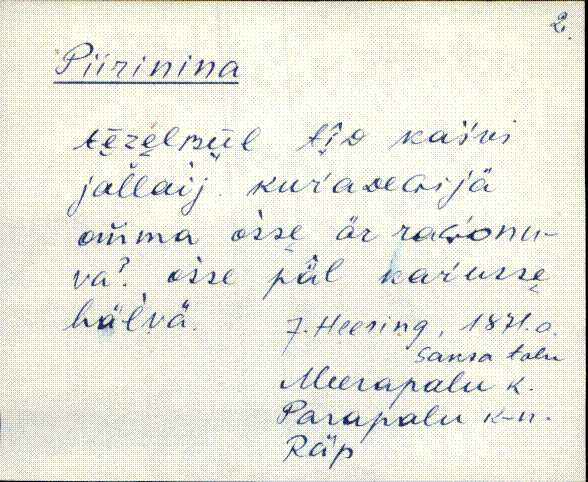 2.
Piirinina
tēzelpǖl tīᴅ kaśvi
jallaij. kuŕaᴅeɢijä
om̆ma ośse är raɢonu-
va? ośse päl kaŕusse
hälvä.
J. Heering, 1871.a.
Saksa talu
Meerapalu k.
Parapalu k-n.
Räp